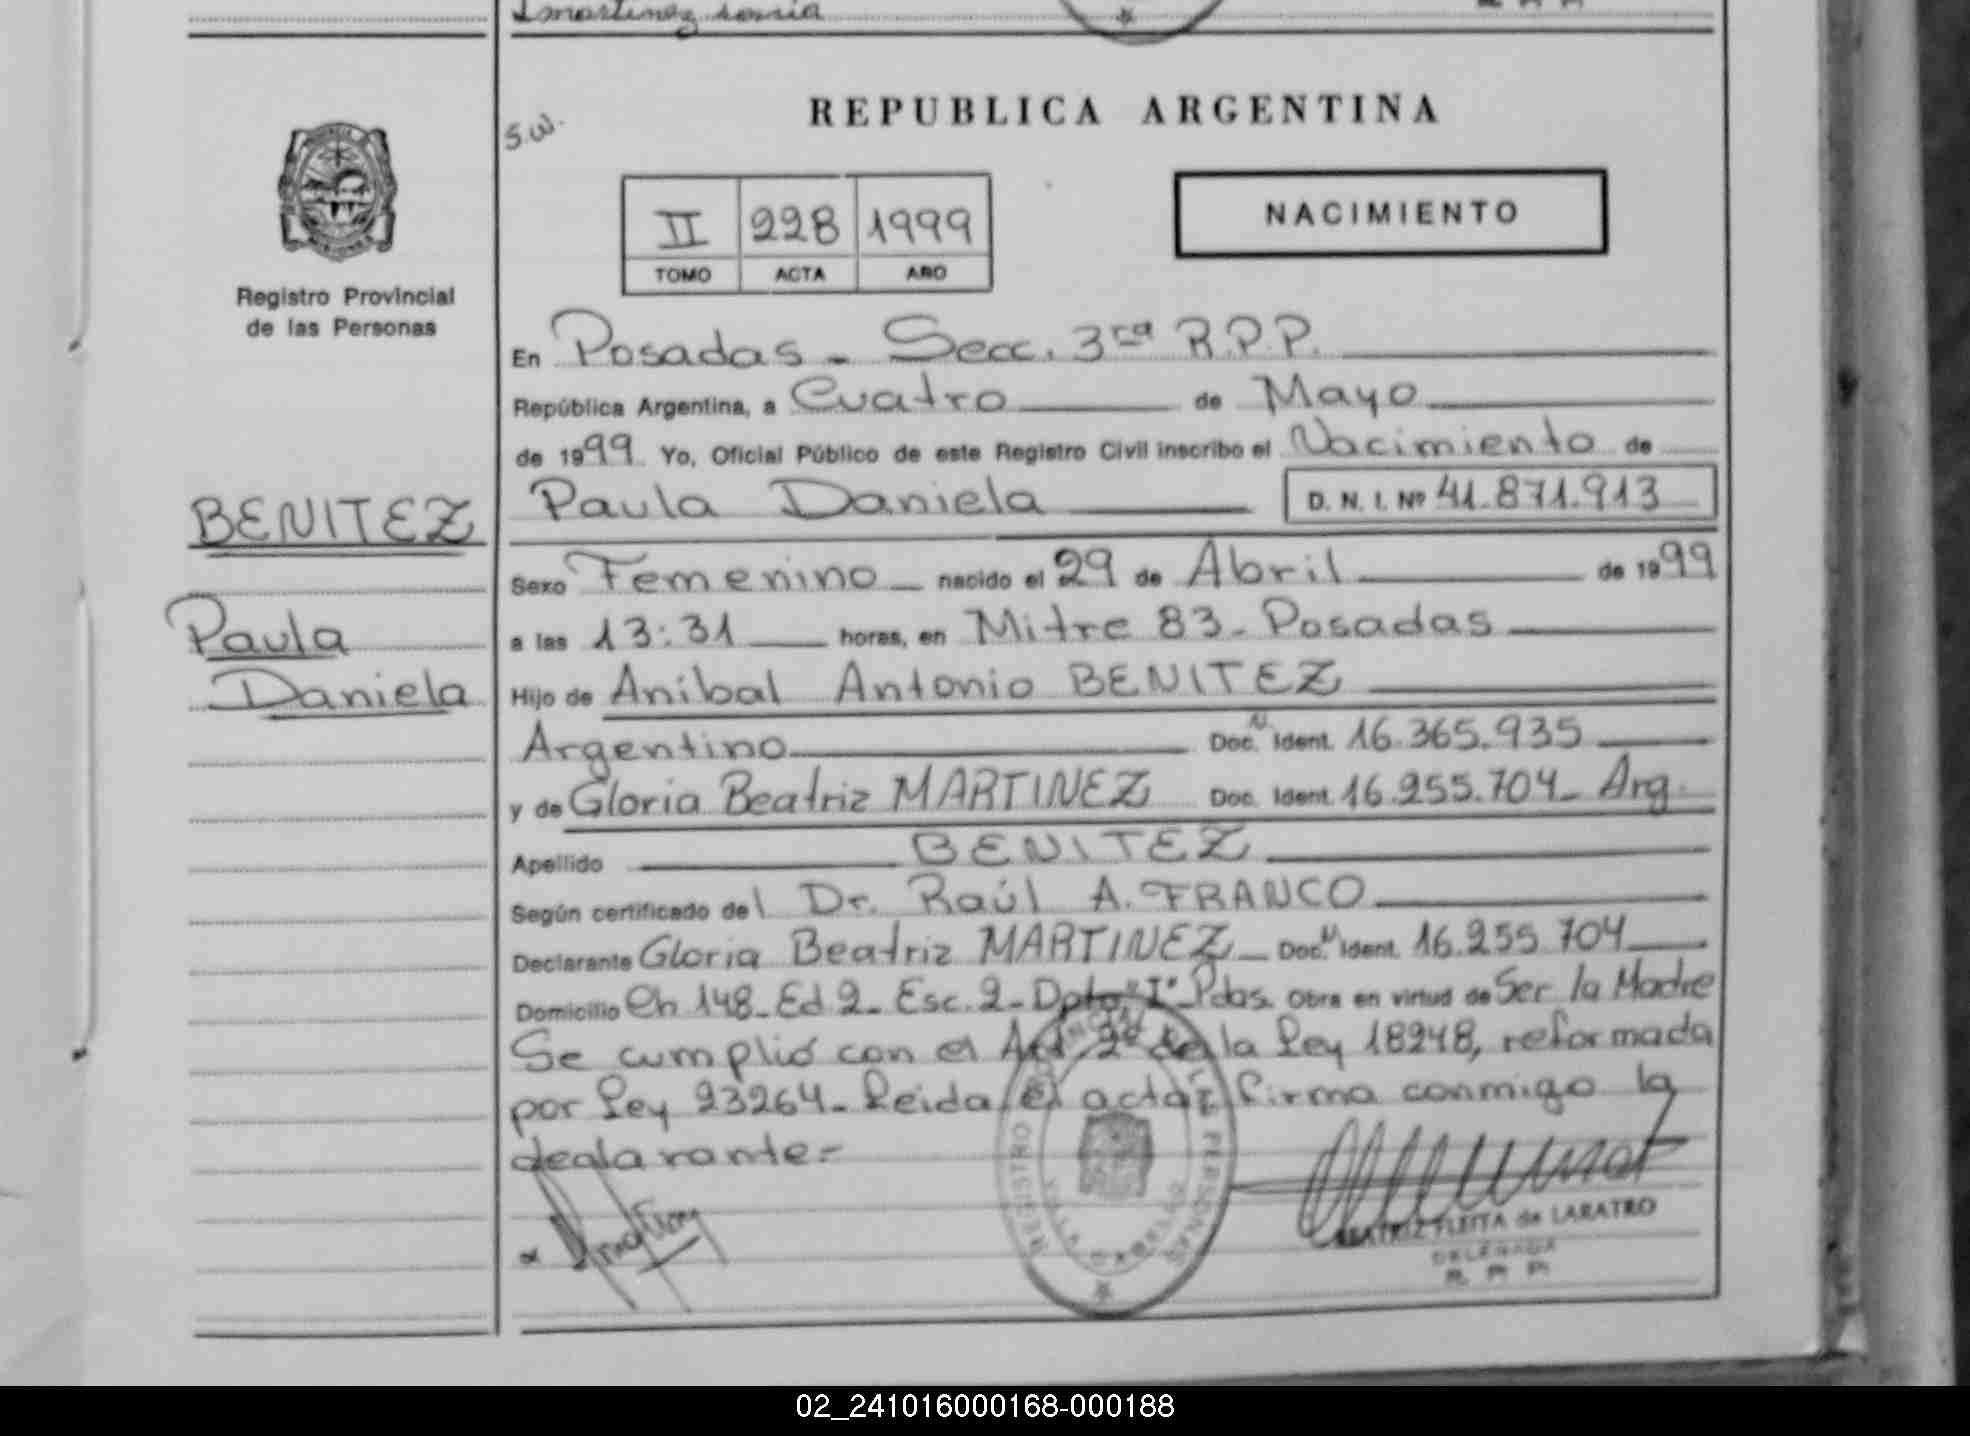 Martinez sonia
REPUBLICA ARGENTINA
S.W.
II 228 1999
TOMO ACTA AÑO
NACIMIENTO
Registro Provincial
de las Personas
En Posadas - Secc. 3ra R.P.P.
República Argentina, a Cuatro de Mayo
de 1999 Yo, Oficial Público de este Registro Civil inscribo el Nacimiento de
BENITEZ
Paula Daniela D. N. I. Nº 41.871.913
Sexo Femenino nacido el 29 de Abril de 1999
Paula
a las 13:31 horas, en Mitre 83 - Posadas
Daniela
Hijo de Anibal Antonio BENITEZ
Argentino Doc. N. Ident. 16.365.935
y de Gloria Beatriz MARTINEZ Doc. Ident. 16.255.704 - Arg.
Apellido BENITEZ
Según certificado del Dr. Raúl A. FRANCO
Declarante Gloria Beatriz MARTINEZ - Doc. N Ident. 16.255.704
Domicilio Ch 148 - Ed 2 - Esc. 2 - Dpto "I" - Pdas. Obra en virtud de Ser la Madre
Se cumplió con el Art. 2º de la Ley 18248, reformada
por Ley 23264 - Leida el acta, firma conmigo la
declarante =
REGISTRO PROVINCIAL DE LAS PERSONAS
VILLA CABELLO
BEATRIZ FLEITA de LARATRO
DELEGADA
R P P
02_241016000168-000188